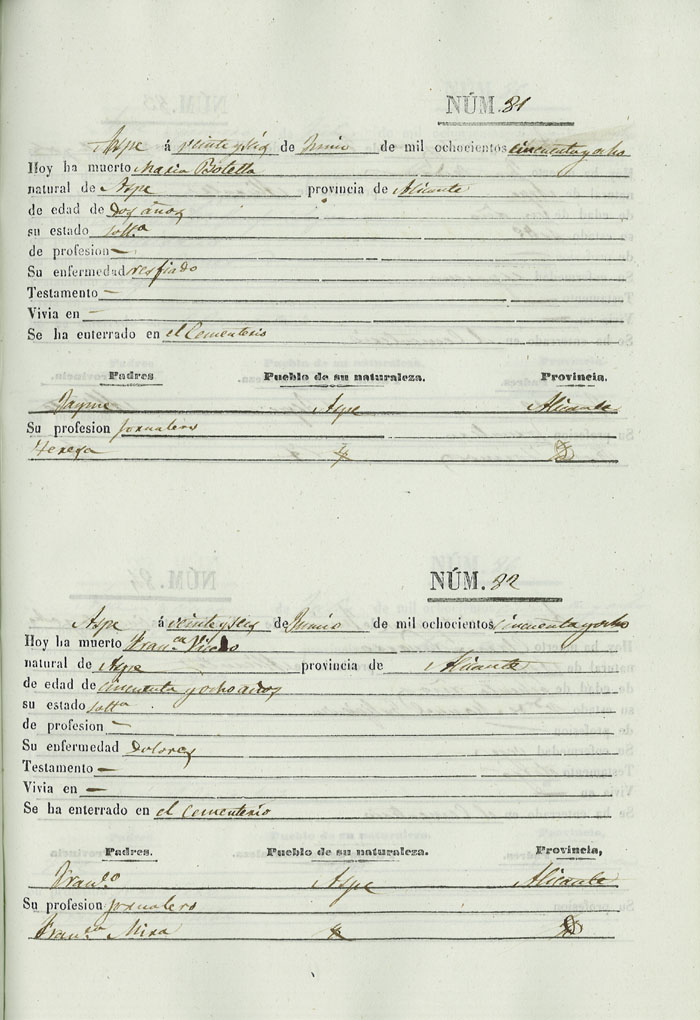 NÚM. 81
Aspe á veinte y seis de Junio de mil ochocientos cincuenta y ocho
Hoy ha muerto Maria Botella
natural de Aspe provincia de Alicante
de edad de dos años
su estado solt.a
de profesion —
Su enfermedad resfiado
Testamento —
Vivia en —
Se ha enterrado en el Cementerio
Padres Pueblo de su naturaleza. Provincia.
Jayme Aspe Alicante
Su profesion jornalero
Teresa
NÚM. 82
Aspe á veinte y seis de Junio de mil ochocientos cincuenta y ocho
Hoy ha muerto Fran.ca
natural de Aspe provincia de Alicante
de edad de cincuenta y ocho años
su estado solt.a
de profesion —
Su enfermedad Dolores
Testamento —
Vivia en —
Se ha enterrado en el Cementerio
Padres. Pueblo de su naturaleza. Provincia,
Fran.co Aspe Alicante
Su profesion jornalero
Fran.ca Mira